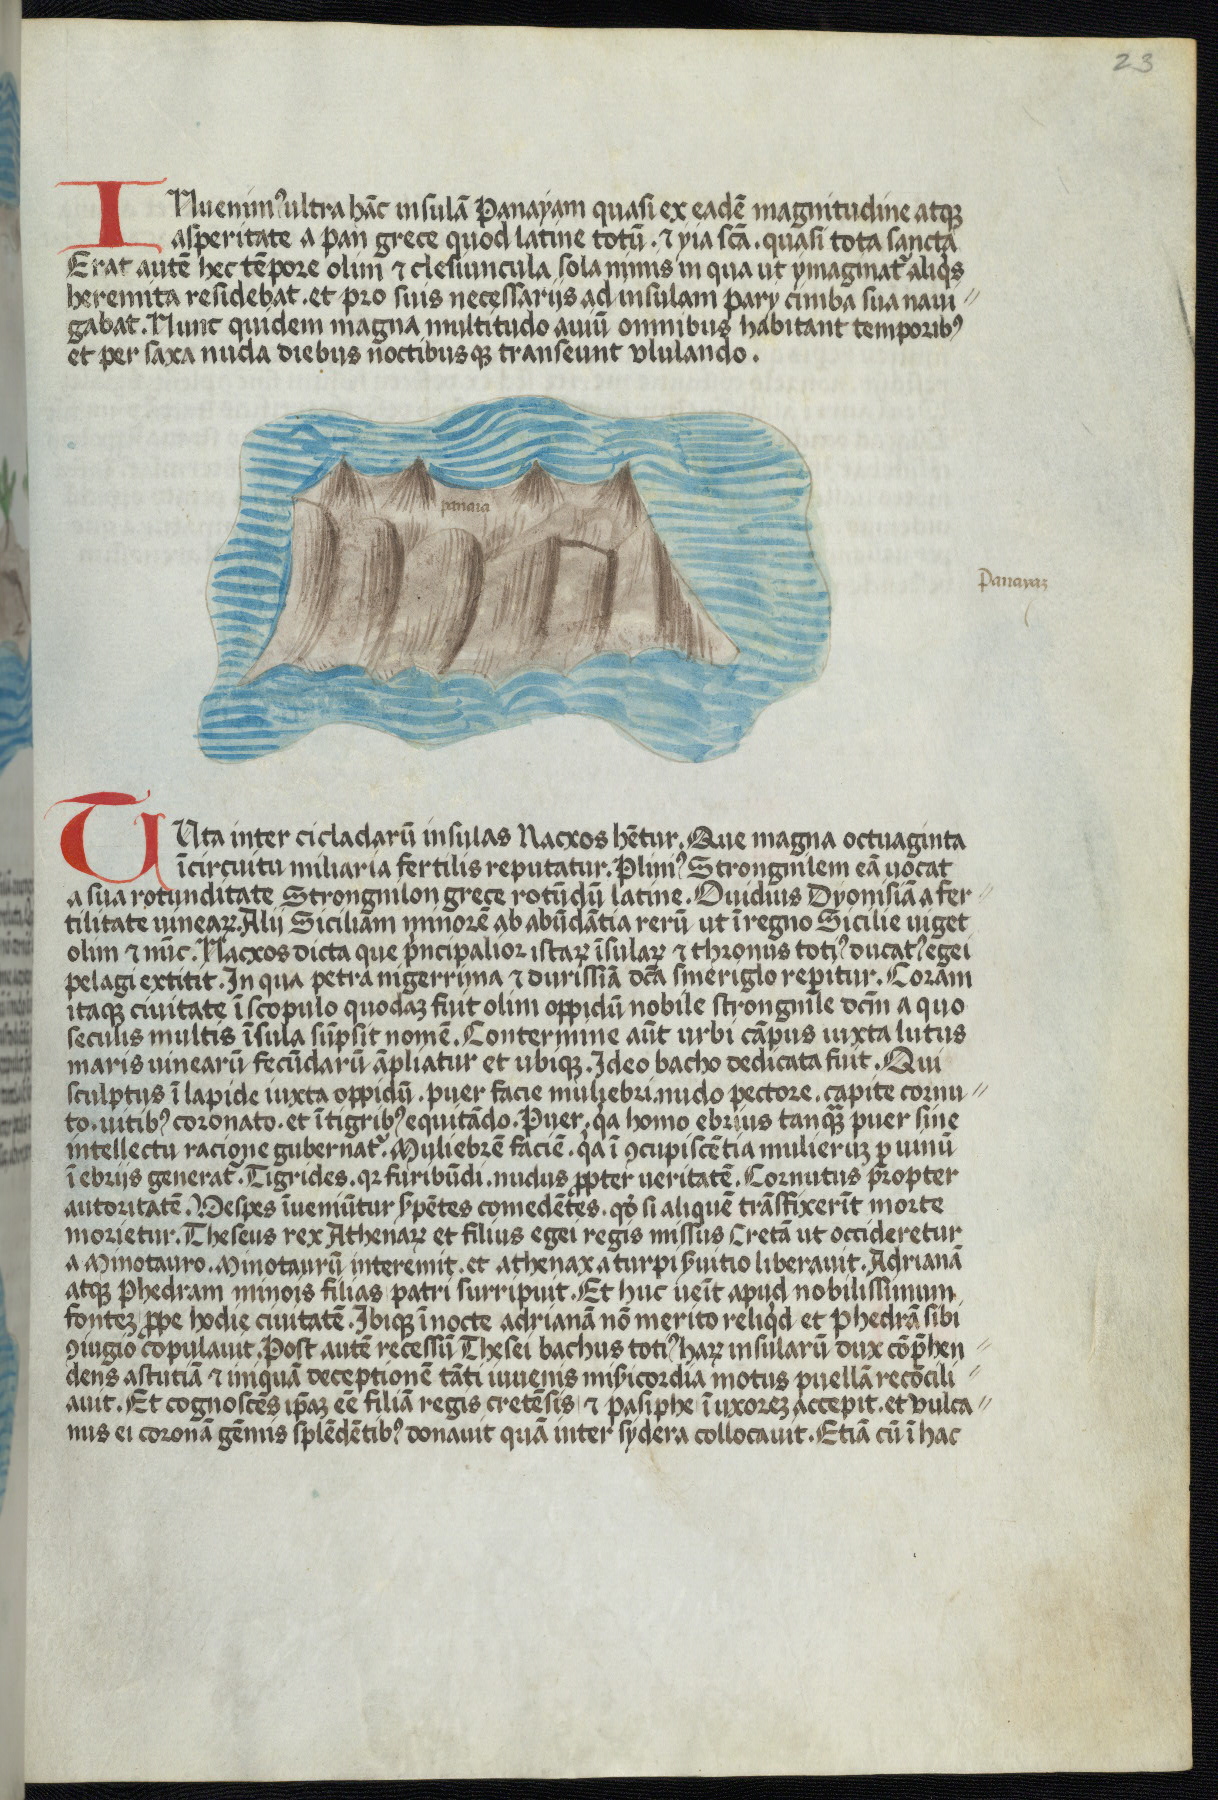 23
INuenim⁹ ultra hāc insulā Panayam quasi ex eadē magnitudine atqꝫ
asperitate a pan grece quod latine totū . ⁊ yia scā . quasi tota sancta
Erat autē hec tēpore olim ⁊ clesiuncula sola nimis in qua ut ymaginat᷑ aliqͥs
heremita residebat . et pro suis necessarijs ad insulam pary cimba sua naui〃
gabat . Nunc quidem magna multitudo auiū omnibus habitant temporib⁹
et per saxa nuda diebus noctibusqꝫ transeunt vlulando .
panaia
Panayaꝫ
Uta inter cicladarū insulas Nacxos hētur . Que magna octuaginta
īcircuitu miliaria fertilis reputatur . Plini⁹ Strongnilem eā uocat
a sua rotunditate Strongnilon grece rotūdū latine . Ouidius Dyonisiā a fer〃
tilitate uineaꝝ . Alij Siciliam minorē ab abūdātia rerū ut īregno Sicilie uiget
olim ⁊ nūc . Nacxos dicta que pͥncipalior istaꝝ īsulaꝝ ⁊ thronus toti⁹ ducat⁹ egei
pelagi extitit . In qua petra nigerrima ⁊ durissīa dcā smeriglo reperitur . Coram
itaqꝫ ciuitate ī scopulo quodaꝫ fuit olim oppidū nobile strongnile dcm̄ a quo
seculis multis īsula sūpsit nomē . Contermine aūt urbi cāpus iuxta lutus
maris uinearū fecūdarū āpliatur et ubiqꝫ . Ideo bacho dedicata fuit . Qui
sculptus ī lapide iuxta oppidū . puer facie muliebri . nudo pectore . capite cornu〃
to . uitib⁹ coronato . et ītigrib⁹ equitādo . Puer . qͥa homo ebrius tanqꝫ puer sine
intellectu racione gubernat᷑ . Muliebrē faciē . qͥa ī ꝯcupiscētia mulieruꝫ ꝑ uinū
ī ebrijs generat᷑ . Tigrides . qꝛ furibūdi . nudus ꝓpter ueritatē . Cornutus propter
autoritatē . Vespes īueniūtur ẜpētes comedētes . qͦ si aliquē trāsfixerīt morte
morietur . Theseus rex Athenaꝝ et filius egei regis missus Cretā ut occideretur
a Minotauro . Minotaurū interemit . et athenax a turpi ẜuitio liberauit . Adrianā
atqꝫ Phedram minois filias patri surripuit . Et huc ueīt apud nobilissimum
fonteꝫ ꝓpe hodie ciuitatē . Ibiqꝫ ī nocte adrianā nō merito reliqͥd et Phedrā sibi
ꝯiugio copulauit . Post autē recessū Thesei bachus toti⁹ haꝝ insularū dux cōp̄hen〃
dens astutiā ⁊ iniquā deceptionē tāti iuuenis miẜicordia motus puellā recōcili〃
auit . Et cognoscēs ip̄aꝫ eē filiā regis cretēsis ⁊ pasiphe ī uxoreꝫ accepit . et vulca〃
nus ei coronā gēmis splēdētib⁹ donauit quā inter sydera collocauit . Etiā cū ī hac